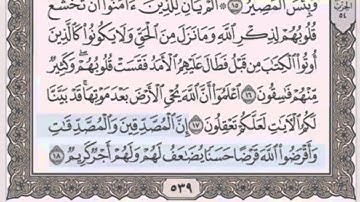 الجزء
٥٤
وَبِئْسَ ٱلْمَصِيرُ ١٥ أَلَمْ يَأْنِ لِلَّذِينَ ءَامَنُوٓا۟ أَن تَخْشَعَ
قُلُوبُهُمْ لِذِكْرِ ٱللَّهِ وَمَا نَزَلَ مِنَ ٱلْحَقِّ وَلَا يَكُونُوا۟ كَٱلَّذِينَ
أُوتُوا۟ ٱلْكِتَـٰبَ مِن قَبْلُ فَطَالَ عَلَيْهِمُ ٱلْأَمَدُ فَقَسَتْ قُلُوبُهُمْ ۖ وَكَثِيرٌ
مِّنْهُمْ فَـٰسِقُونَ ١٦ ٱعْلَمُوٓا۟ أَنَّ ٱللَّهَ يُحْىِ ٱلْأَرْضَ بَعْدَ مَوْتِهَا ۚ قَدْ بَيَّنَّا
لَكُمُ ٱلْـَٔايَـٰتِ لَعَلَّكُمْ تَعْقِلُونَ ١٧ إِنَّ ٱلْمُصَّدِّقِينَ وَٱلْمُصَّدِّقَـٰتِ
وَأَقْرَضُوا۟ ٱللَّهَ قَرْضًا حَسَنًا يُضَـٰعَفُ لَهُمْ وَلَهُمْ أَجْرٌ كَرِيمٌ ١٨
٥٣٩